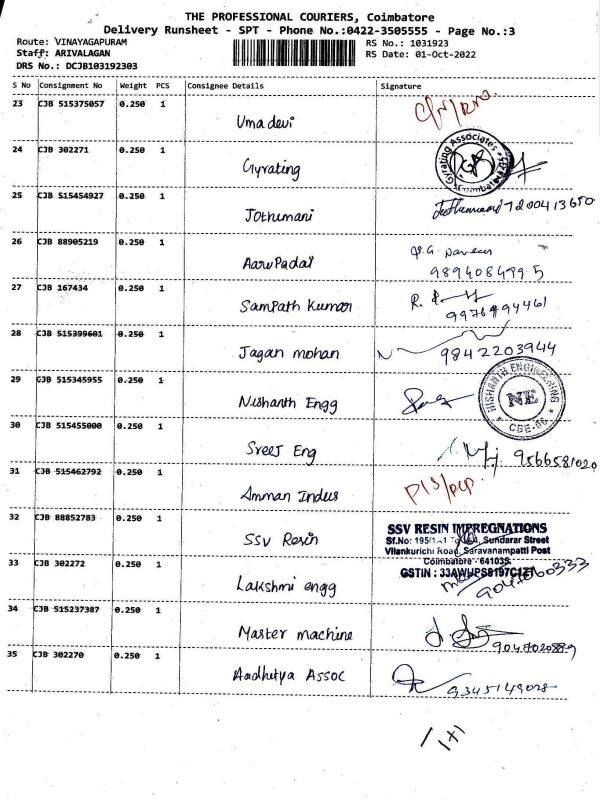 THE PROFESSIONAL COURIERS, Coimbatore
Delivery Runsheet - SPT - Phone No.:0422-3505555 - Page No.:3
Route: VINAYAGAPURAM RS No.: 1031923
Staff: ARIVALAGAN RS Date: 01-Oct-2022
DRS No.: DCJB103192303
S No Consignment No Weight PCS Consignee Details Signature
23 CJB 515375057 0.250 1 Uma devi
24 CJB 302271 0.250 1 Gyrating
Gyrating Associates
25 CJB 515454927 0.250 1 Jothimani 7200413650
26 CJB 88905219 0.250 1 AaruPadai
9894084995
27 CJB 167434 0.250 1 Sampath Kumar
9976494461
28 CJB 515399601 0.250 1 Jagan mohan 9842203944
29 CJB 515345955 0.250 1 Nishanth Engg
NISHANTH ENGINEERING
NE
CBE-06
30 CJB 515455000 0.250 1 Sreej Eng 9566581020
31 CJB 515462792 0.250 1 Amman Indus
32 CJB 88852783 0.250 1 SSV Resin
SSV RESIN IMPREGNATIONS
Sundarar Street
Vilankurichi Road, Saravanampatti Post
Coimbatore - 641035
GSTIN :
33 CJB 302272 0.250 1 Lakshmi engg
34 CJB 515237387 0.250 1 Master machine
9047020889
35 CJB 302270 0.250 1 Aadhitya Assoc
9345149028
1+1